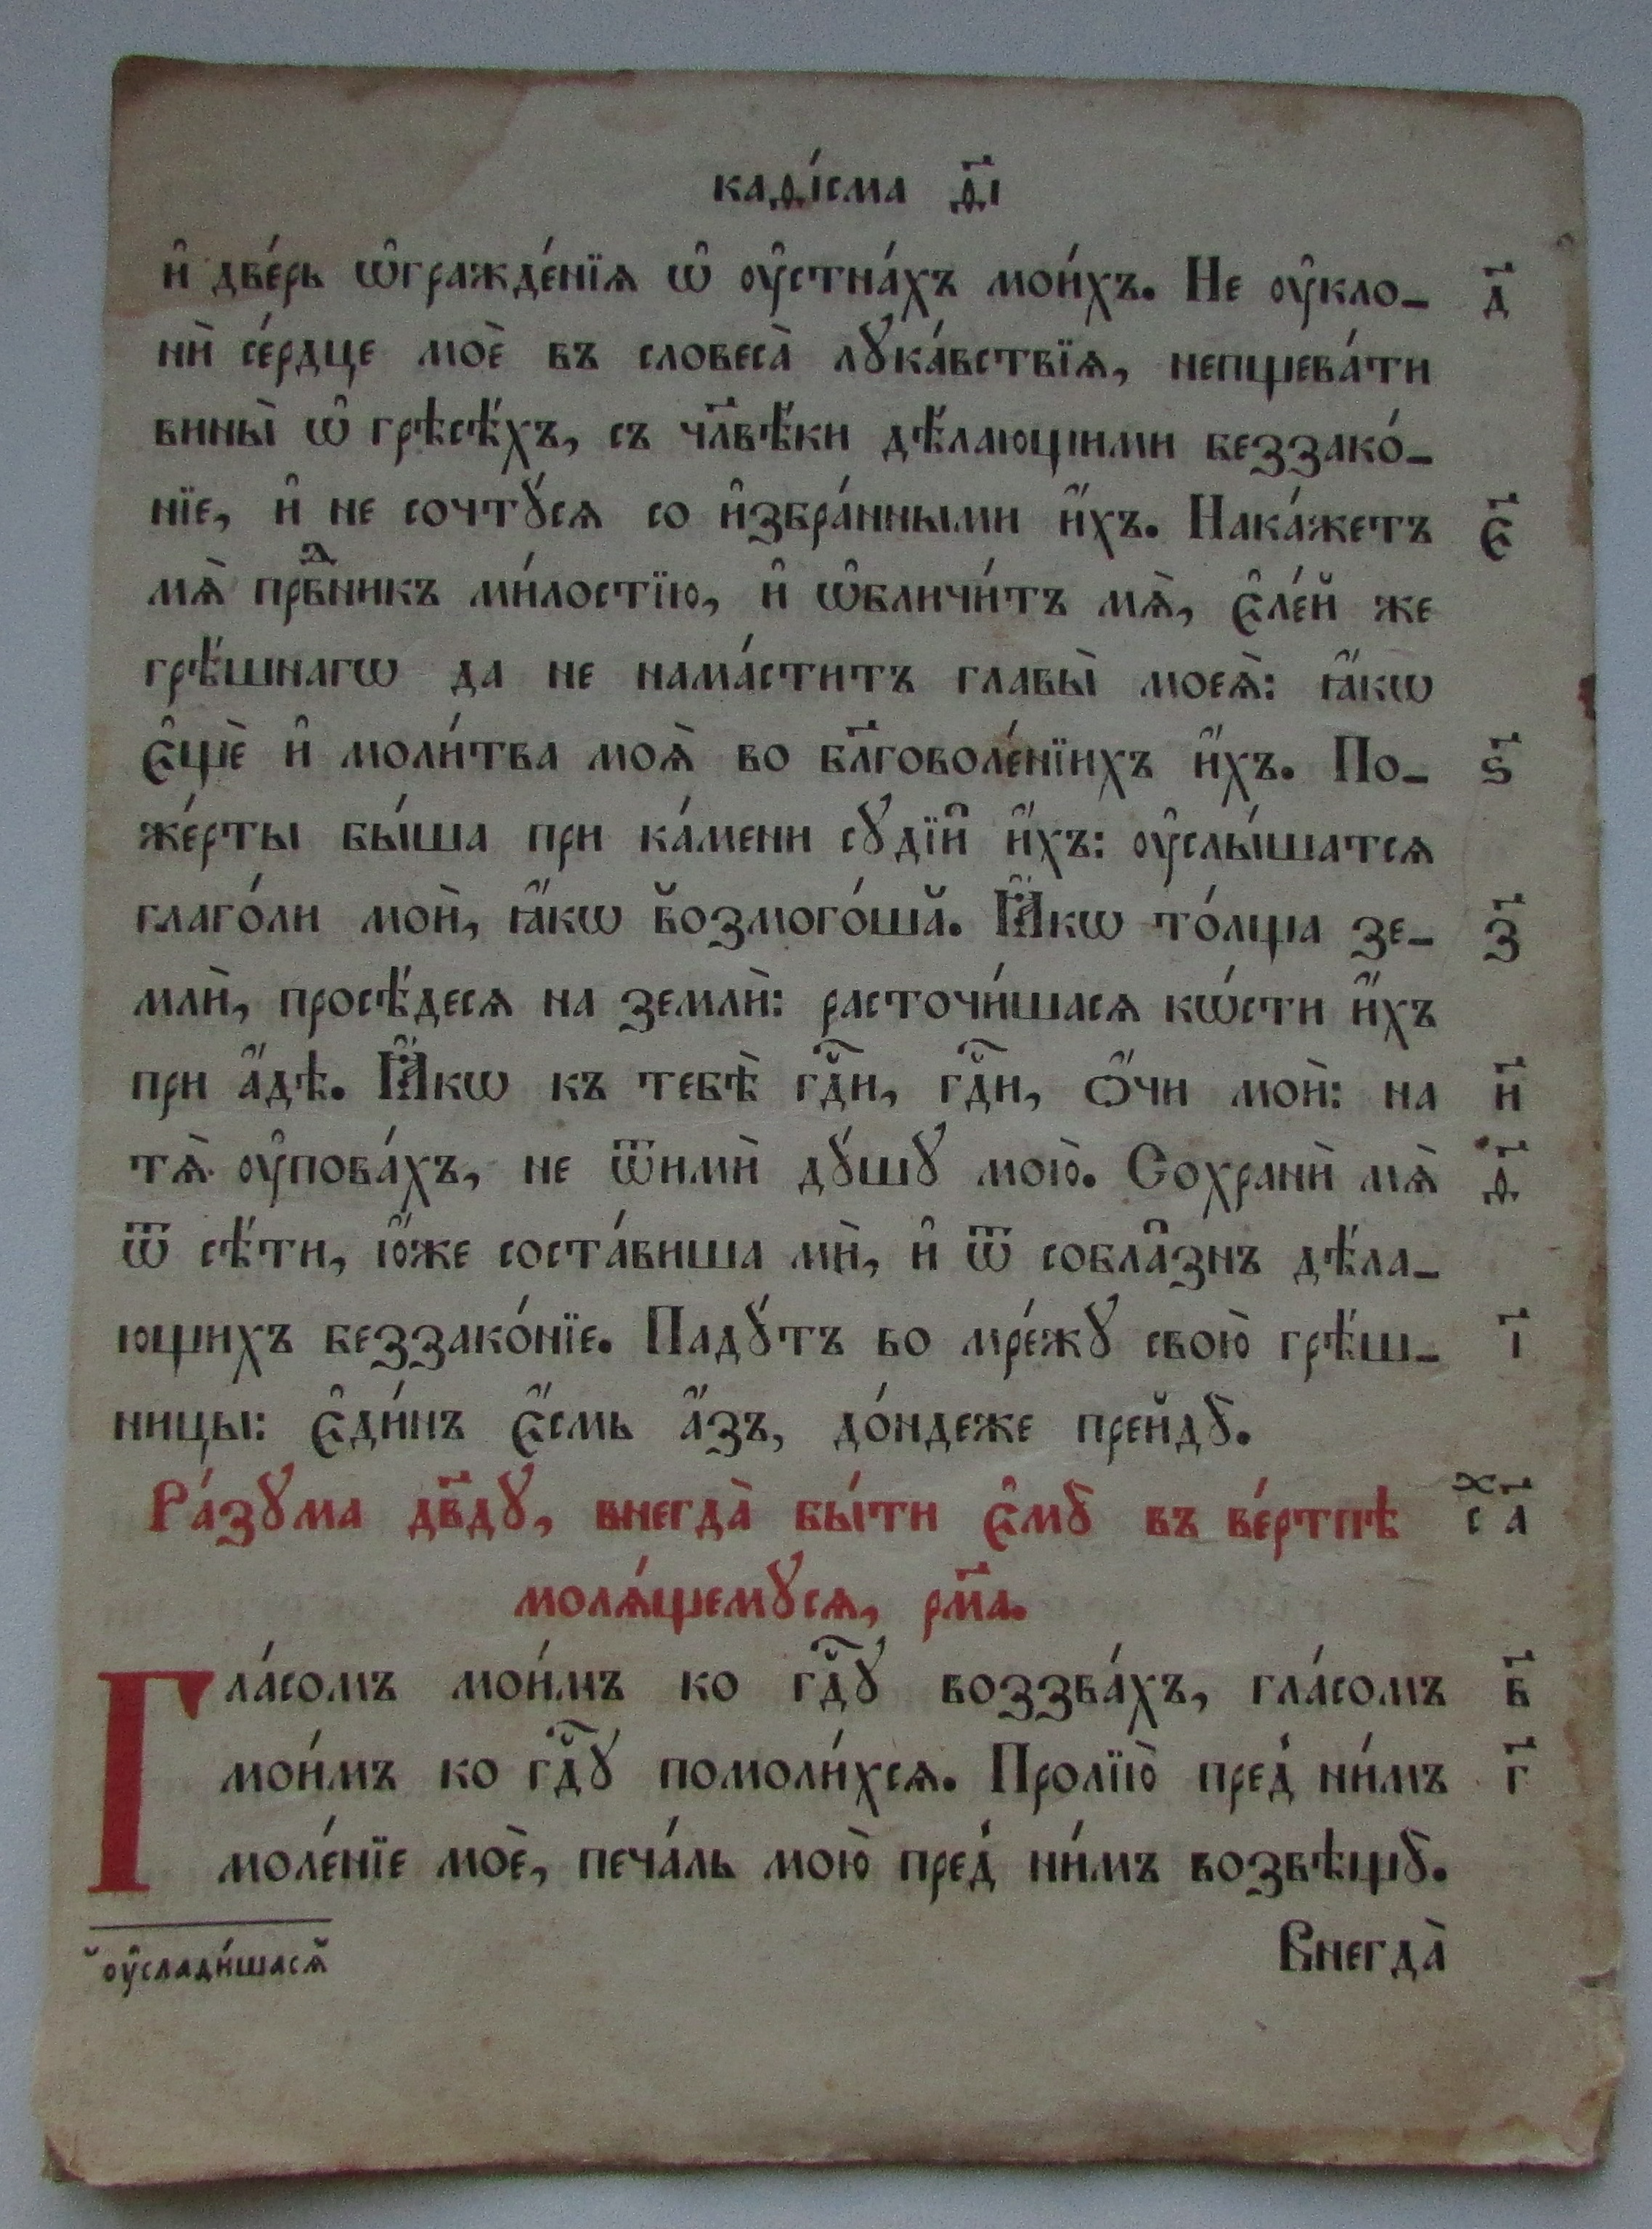 каѳі́сма ѳ҃і
и҆ две́рь ѡ҆гражде́нїѧ ѡ҆ ѹ҆стна́хъ мои́хъ. Не ѹ҆кло- д҃
нѝ се́рдце моѐ въ словеса̀ лꙋка́вствїѧ, непщева́ти
вины̀ ѡ҆ грѣсѣ́хъ, съ чл҃вѣ́ки дѣ́лающими беззако́-
нїе, и҆ не сочтꙋ́сѧ со и҆збра́нными и҆́хъ. Нака́жетъ є҃
мѧ̀ првⷣникъ ми́лостїю, и҆ ѡ҆бличи́тъ мѧ̀, є҆ле́й же
грѣ́шнагѡ да не нама́ститъ главы̀ моеѧ̀: ꙗ҆́кѡ
є҆щѐ и҆ моли́тва моѧ̀ во бл҃говоле́нїихъ и҆́хъ. По- ѕ҃
же́рты бы́ша при ка́мени сꙋдїи̑ и҆́хъ: ѹ҆слы́шатсѧ
глаго́ли мои̑, ꙗ҆́кѡ в̆озмого́шӑ. Ꙗ҆́кѡ то́лща зе- з҃
млѝ, просѣ́десѧ на землѝ: расточи́шасѧ кѡ́сти и҆́хъ
при а҆́дѣ. Ꙗ҆́кѡ къ тебѣ̀ гдⷭ҇и, гдⷭ҇и, ѻ҆́чи мои̑: на и҃
тѧ̀ ѹ҆пова́хъ, не ѿимѝ дꙋ́шꙋ мою̀. Сохранѝ мѧ̀ ѳ҃
ѿ сѣ́ти, ю҆́же соста́виша мѝ, и҆ ѿ собла̑знъ дѣ́ла-
ющихъ беззако́нїе. Падꙋ́тъ во мре́жꙋ свою̀ грѣ́ш- і҃
ницы: є҆ди́нъ є҆́смь а҆́зъ, до́ндеже прейдꙋ̀.
Ра́зꙋма дв҃дꙋ, внегда̀ бы́ти є҆мꙋ̀ въ ве́ртпѣ сⷯ а҃
молѧ́щемꙋсѧ, рм҃а.
Гла́сомъ мои́мъ ко гдⷭ҇ꙋ воззва́хъ, гла́сомъ в҃
мои́мъ ко гдⷭ҇ꙋ помоли́хсѧ. Пролїю̀ пред̾ ни́мъ г҃
моле́нїе моѐ, печа́ль мою̀ пред̾ ни́мъ возвѣщꙋ̀.
Внегда̀
̆ѹ҆слади́шасѧ̆